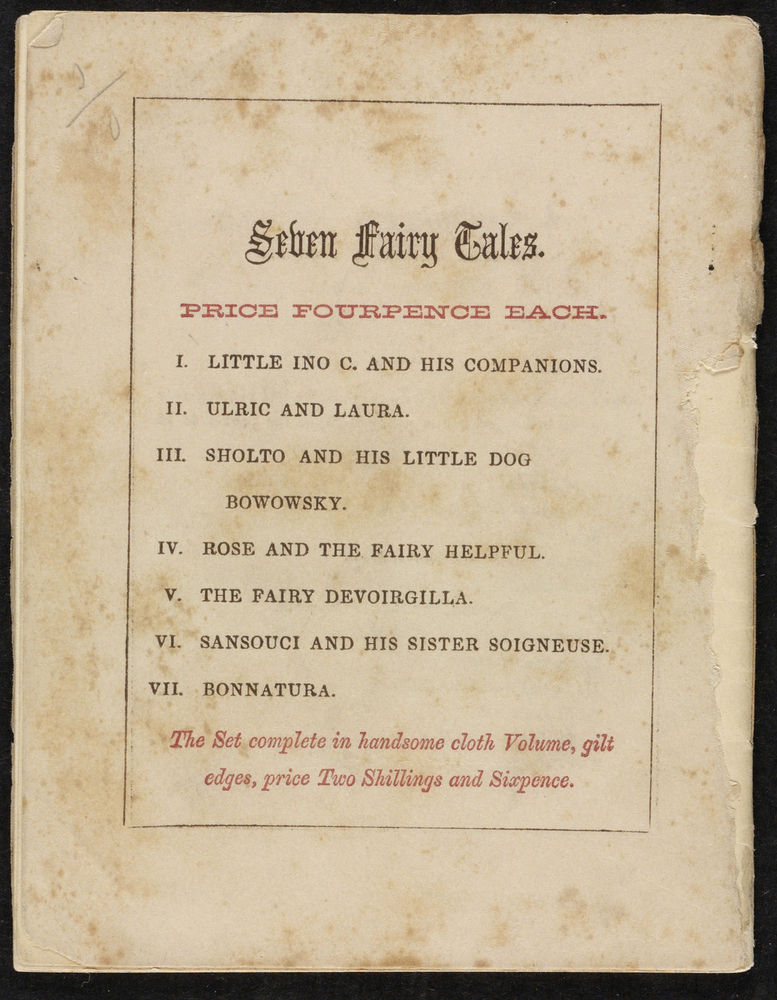 Seven Fairy Tales.
PRICE FOURPENCE EACH.
I. LITTLE INO C. AND HIS COMPANIONS.
II. ULRIC AND LAURA.
III. SHOLTO AND HIS LITTLE DOG
BOWOWSKY.
IV. ROSE AND THE FAIRY HELPFUL.
V. THE FAIRY DEVOIRGILLA.
VI. SANSOUCI AND HIS SISTER SOIGNEUSE.
VII. BONNATURA.
The Set complete in handsome cloth Volume, gilt
edges, price Two Shillings and Sixpence.